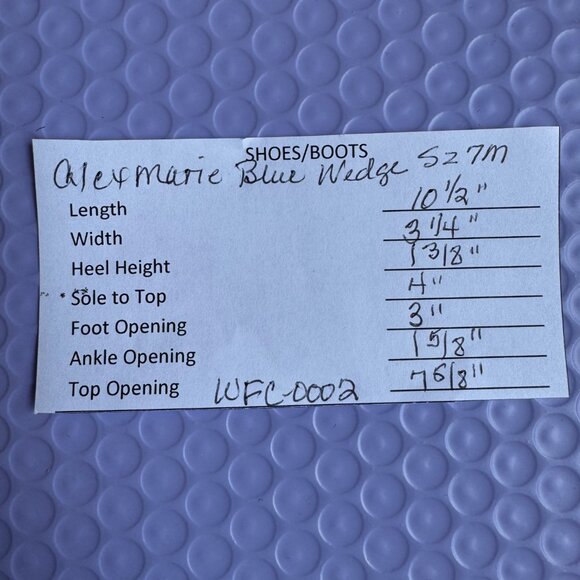 SHOES/BOOTS
Alex Marie Blue Wedge Sz 7M
Length 10 1/2"
Width 3 1/4"
Heel Height 1 3/8"
Sole to Top 4"
Foot Opening 3"
Ankle Opening 1 5/8"
Top Opening WFC-0002 7 6/8"